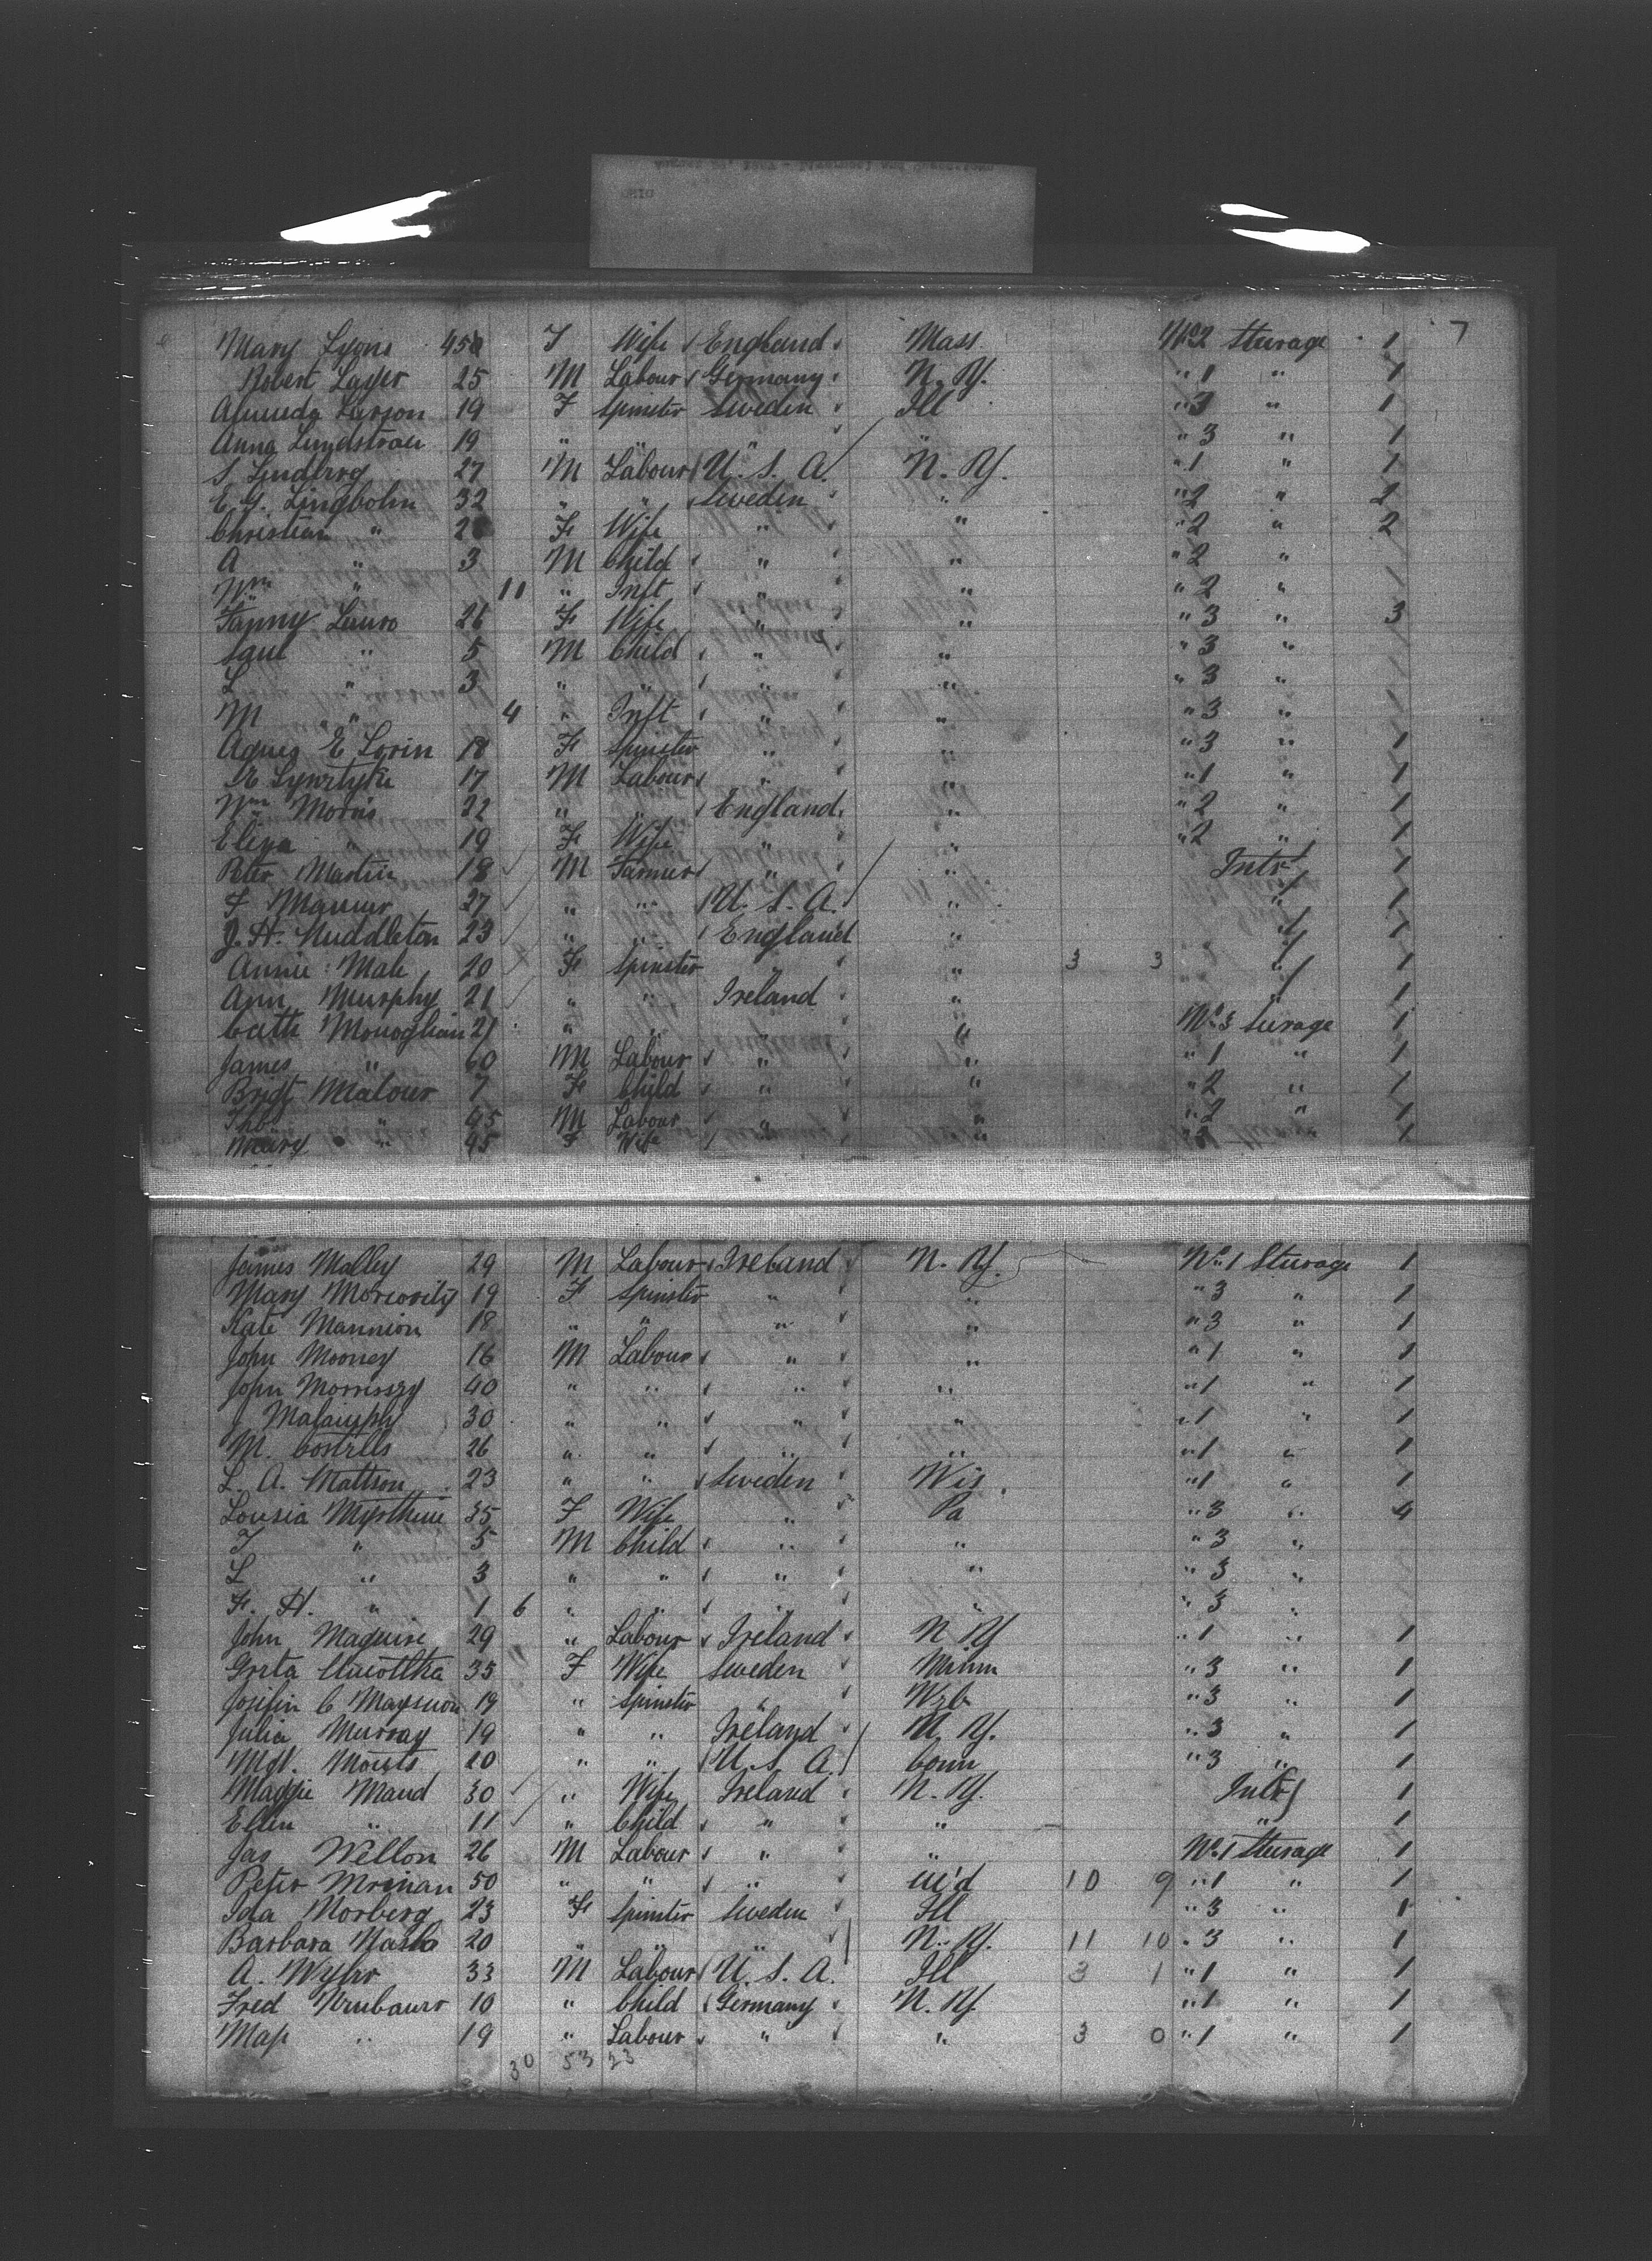 7
Mary Lyons 45 F Wife England Mass. No 2 Sturage 1
Robert Layer 25 M Labour Germany N. Y. " 1 " 1
Larson 19 F Spinster Sweden Ill " 3 " 1
Anna 19 " " " " " 3 " 1
S. 27 M Labour U. S. A. N. Y. " 1 " 1
32 " " Sweden " " 2 " 2
Christian " F Wife " " " 2 " 2
A " 3 M Child " " " 2 "
Wm " 11 " Inft " " " 2 "
Fanny 26 F Wife " " " 3 " 3
" 5 M Child " " " 3 "
L " 3 " " " " " 3 "
M " 4 " Inft " " " 3 "
Agnes E Lorin 18 F Spinster " " " 3 " 1
17 M Labour " " " 1 " 1
Wm Morris 22 " " England " " 2 " 1
Eliza " 19 F Wife " " " 2 " 1
Peter Martin 18 M Farmer " " Intr 1
F 27 " " U. S. A. " " 1
J. H. Muddleton 23 " " England " " 1
Annie Male 20 F Spinster " " 3 3 " 1
Ann Murphy 21 " " Ireland " " 1
Cath Monoghan 21 " " " " No 3 turage 1
James " 60 M Labour " " " 1 " 1
Bridt 7 F Child " " " 2 " 1
Thos " 45 M Labour " " " 2 " 1
Mary " 45 F Wife " " " 2 " 1
James Malley 29 M Labour Ireland N. Y. No 1 Sturage 1
Mary 19 F Spinster " " " 3 " 1
Kate Mannion 18 " " " " " 3 " 1
John Mooney 16 M Labour " " " 1 " 1
John Morrissey 40 " " " " " 1 " 1
J 30 " " " " " 1 " 1
M. 26 " " " " " 1 " 1
L. A. Mattson 23 " " Sweden Wis. " 1 " 1
Lousia 35 F Wife " Pa " 3 " 4
F " 5 M Child " " " 3 "
L " 3 " " " " " 3 "
F. H. " 1 6 " " " " " 3 "
John Maguire 29 " Labour Ireland N Y " 1 " 1
Greta 35 F Wife Sweden Minn " 3 " 1
C 19 " Spinster " " 3 " 1
Julia Murray 19 " " Ireland N. Y. " 3 " 1
20 " " U. S. A. Conn " 3 " 1
Maggie Maud 30 " Wife Ireland N. Y. Intr 1
Ellen " 11 " Child " " " 1
Jas 26 M Labour " " No 1 Sturage 1
Peter 50 " " " 10 9 " 1 " 1
Ida 23 F Spinster Sweden Ill " 3 " 1
Barbara 20 " " " N. Y. 11 10 " 3 " 1
A. 33 M Labour U. S. A. Ill 3 1 " 1 " 1
Fred 10 " Child Germany N. Y. " 1 " 1
" 19 " Labour " " 3 0 " 1 " 1
30 53 23